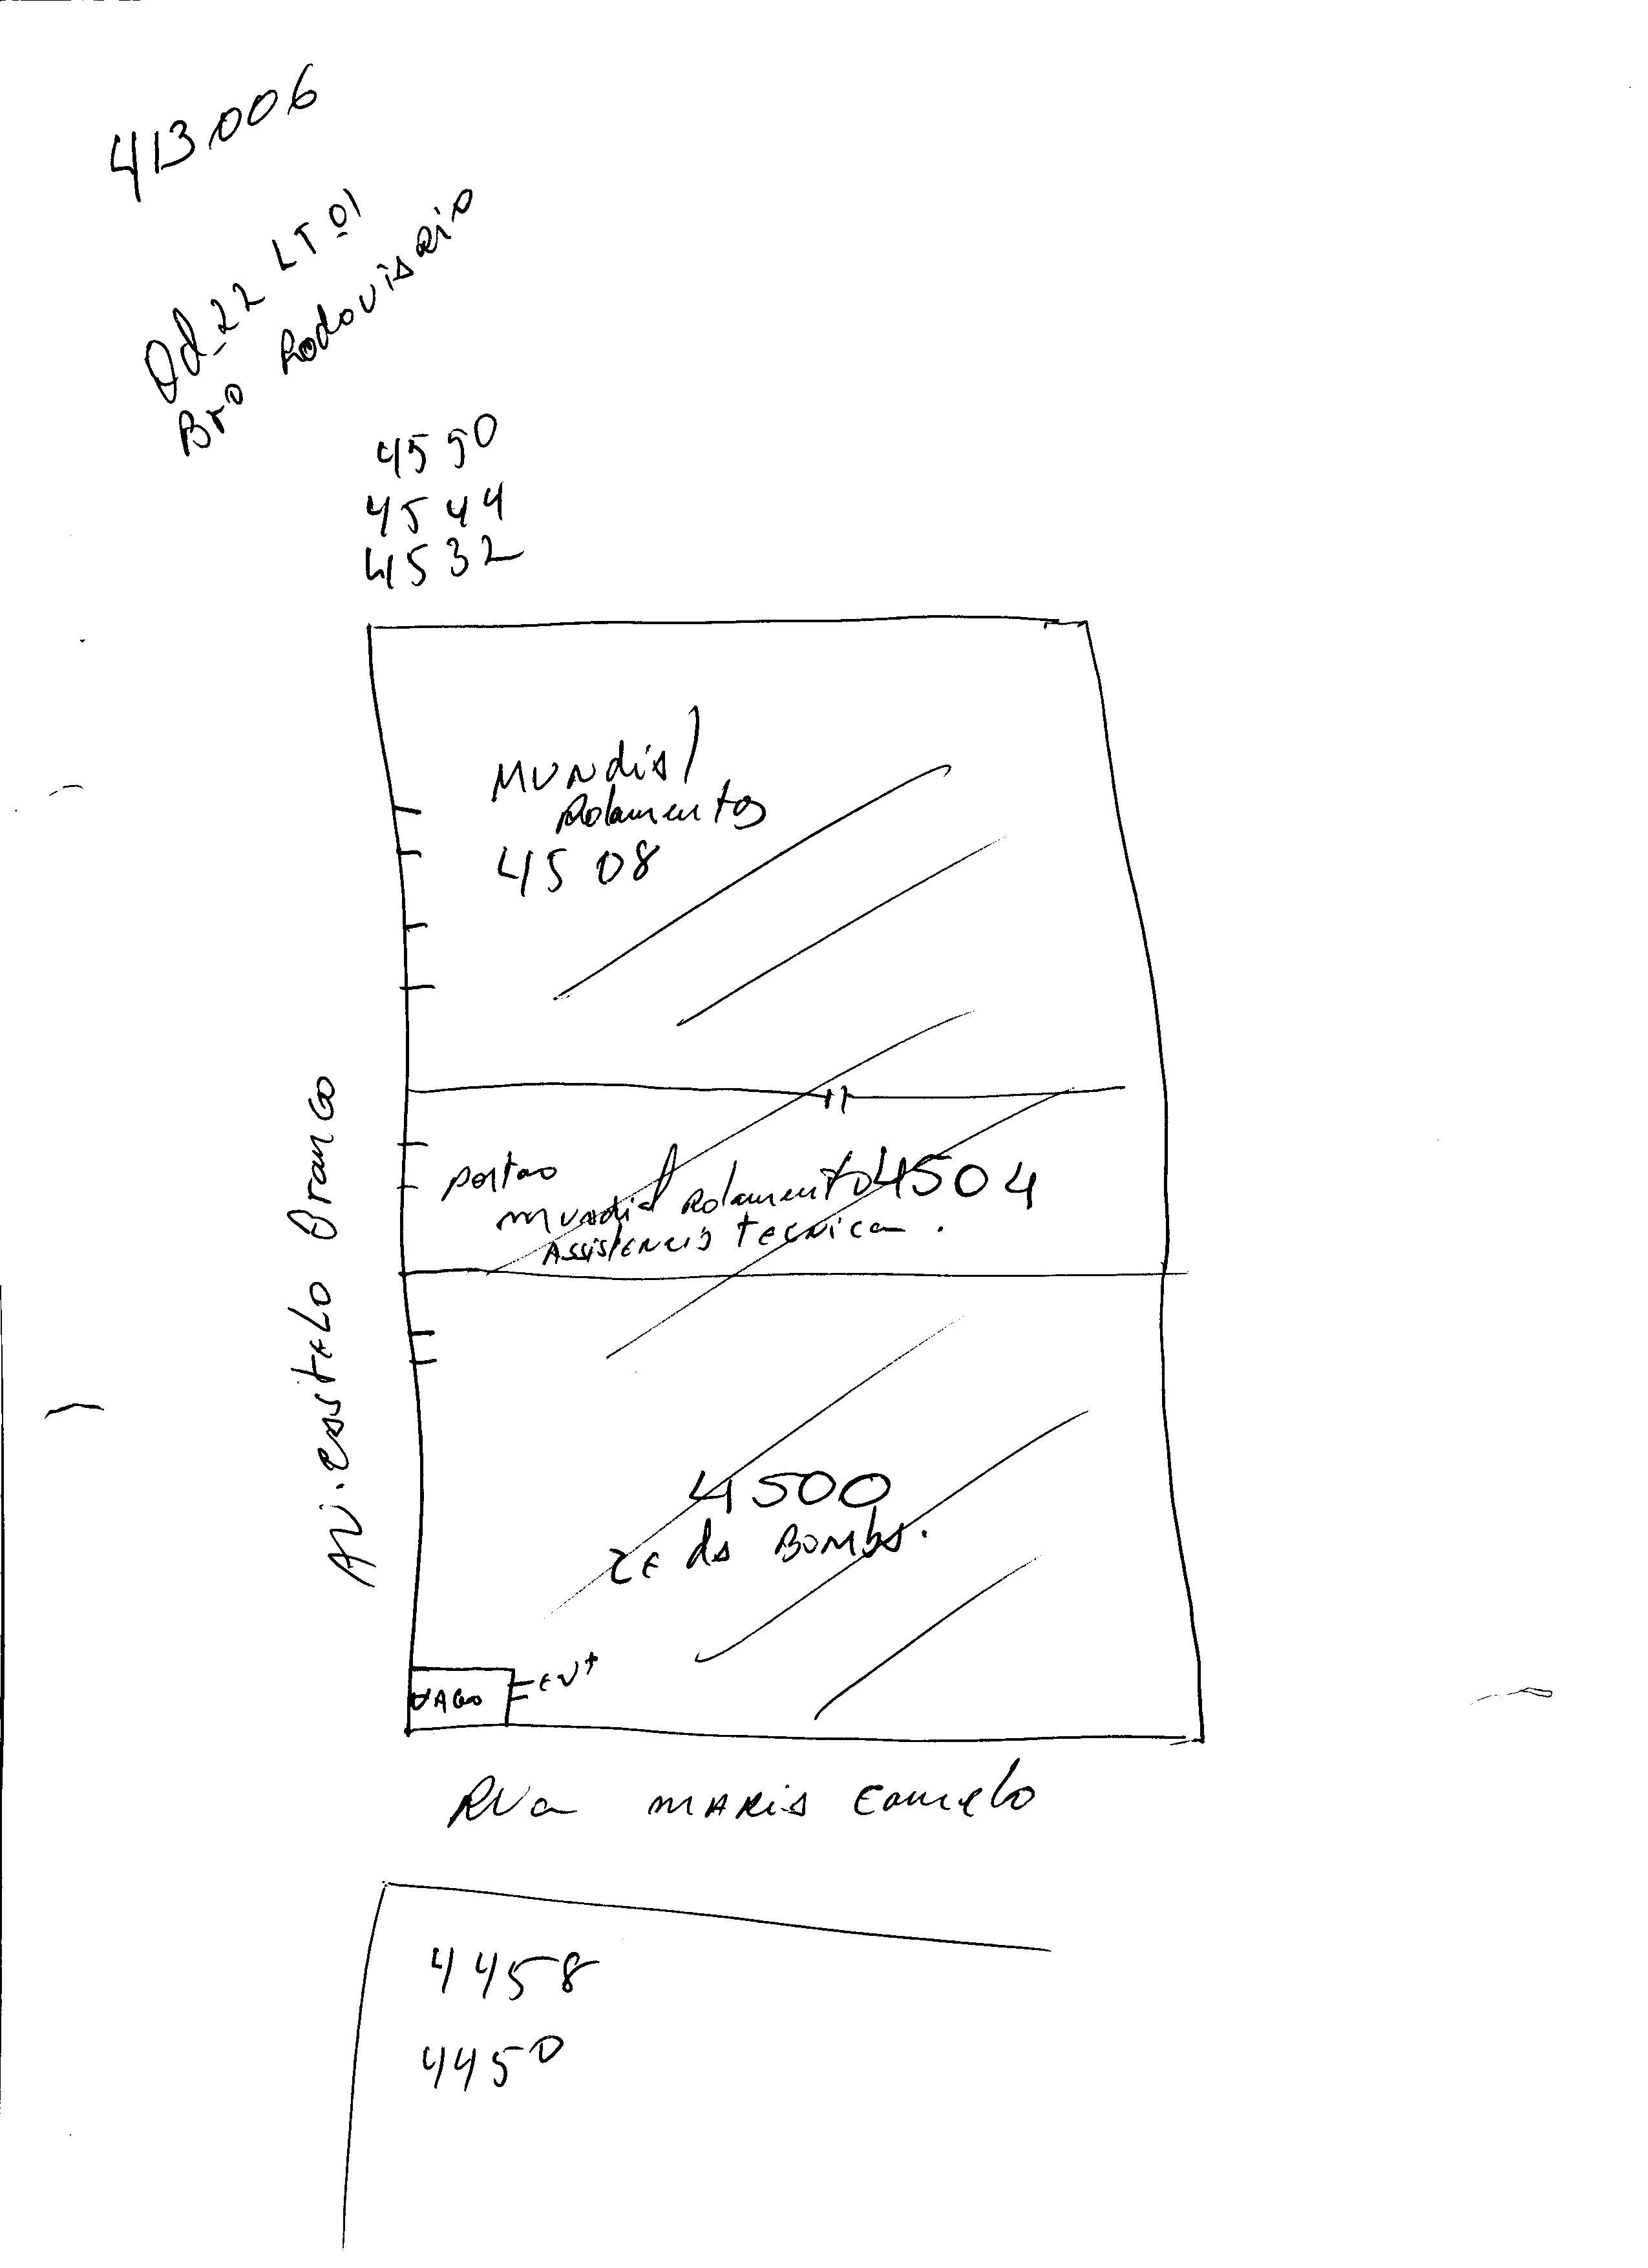 413006
Qd_22 LT 01
Bro Rodoviario
4550
4544
4532
MUNdial
Rolamentos
4508
portao
Mundial Rolamento 4504
Assistencia tecnica.
Av. Castelo Branco
4500
Ze da Bomba.
VAGO
Rua MARIA Camelo
4458
4450